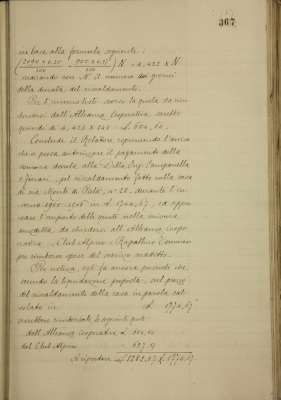 367
in base alla formola seguente:
(2090 × 0.20 / 100 ) N = 4,423 × N
marcando con N il numero dei giorni
della durata del riscaldamento.
Per l'inverno testè scorso la quota da rim
borsarsi dall'Alleanza Cooperativa sarebbe
quindi di 4,423 × 148 = £. 654,60.
Conclude il Relatore esprimendo l'avviso
che si possa autorizzare il pagamento della
somma dovuta alla Ditta Ing. Campanella
pel riscaldamento fatto nella casa
di via Monte di Pietà, n° 28, durante l'in
verno 1905-1906 in £. 1774,67, ed appro
vare l'importo delle quote nella misura
anzidetta, da chiedersi all'Alleanza Coope
rativa, Club Alpino e
per rimborso spese del servizio suddetto.
Per notizia, egli fa ancora presente che,
secondo la liquidazione proposta, sul prezzo
del riscaldamento della casa in parola cal
colato in £. 1774,67
sarebbero rimborsate le seguenti quote
dall'Alleanza Cooperativa £. 654,60
dal Club Alpino " 627,57
A riportare £. 1282,17 £. 1774,67